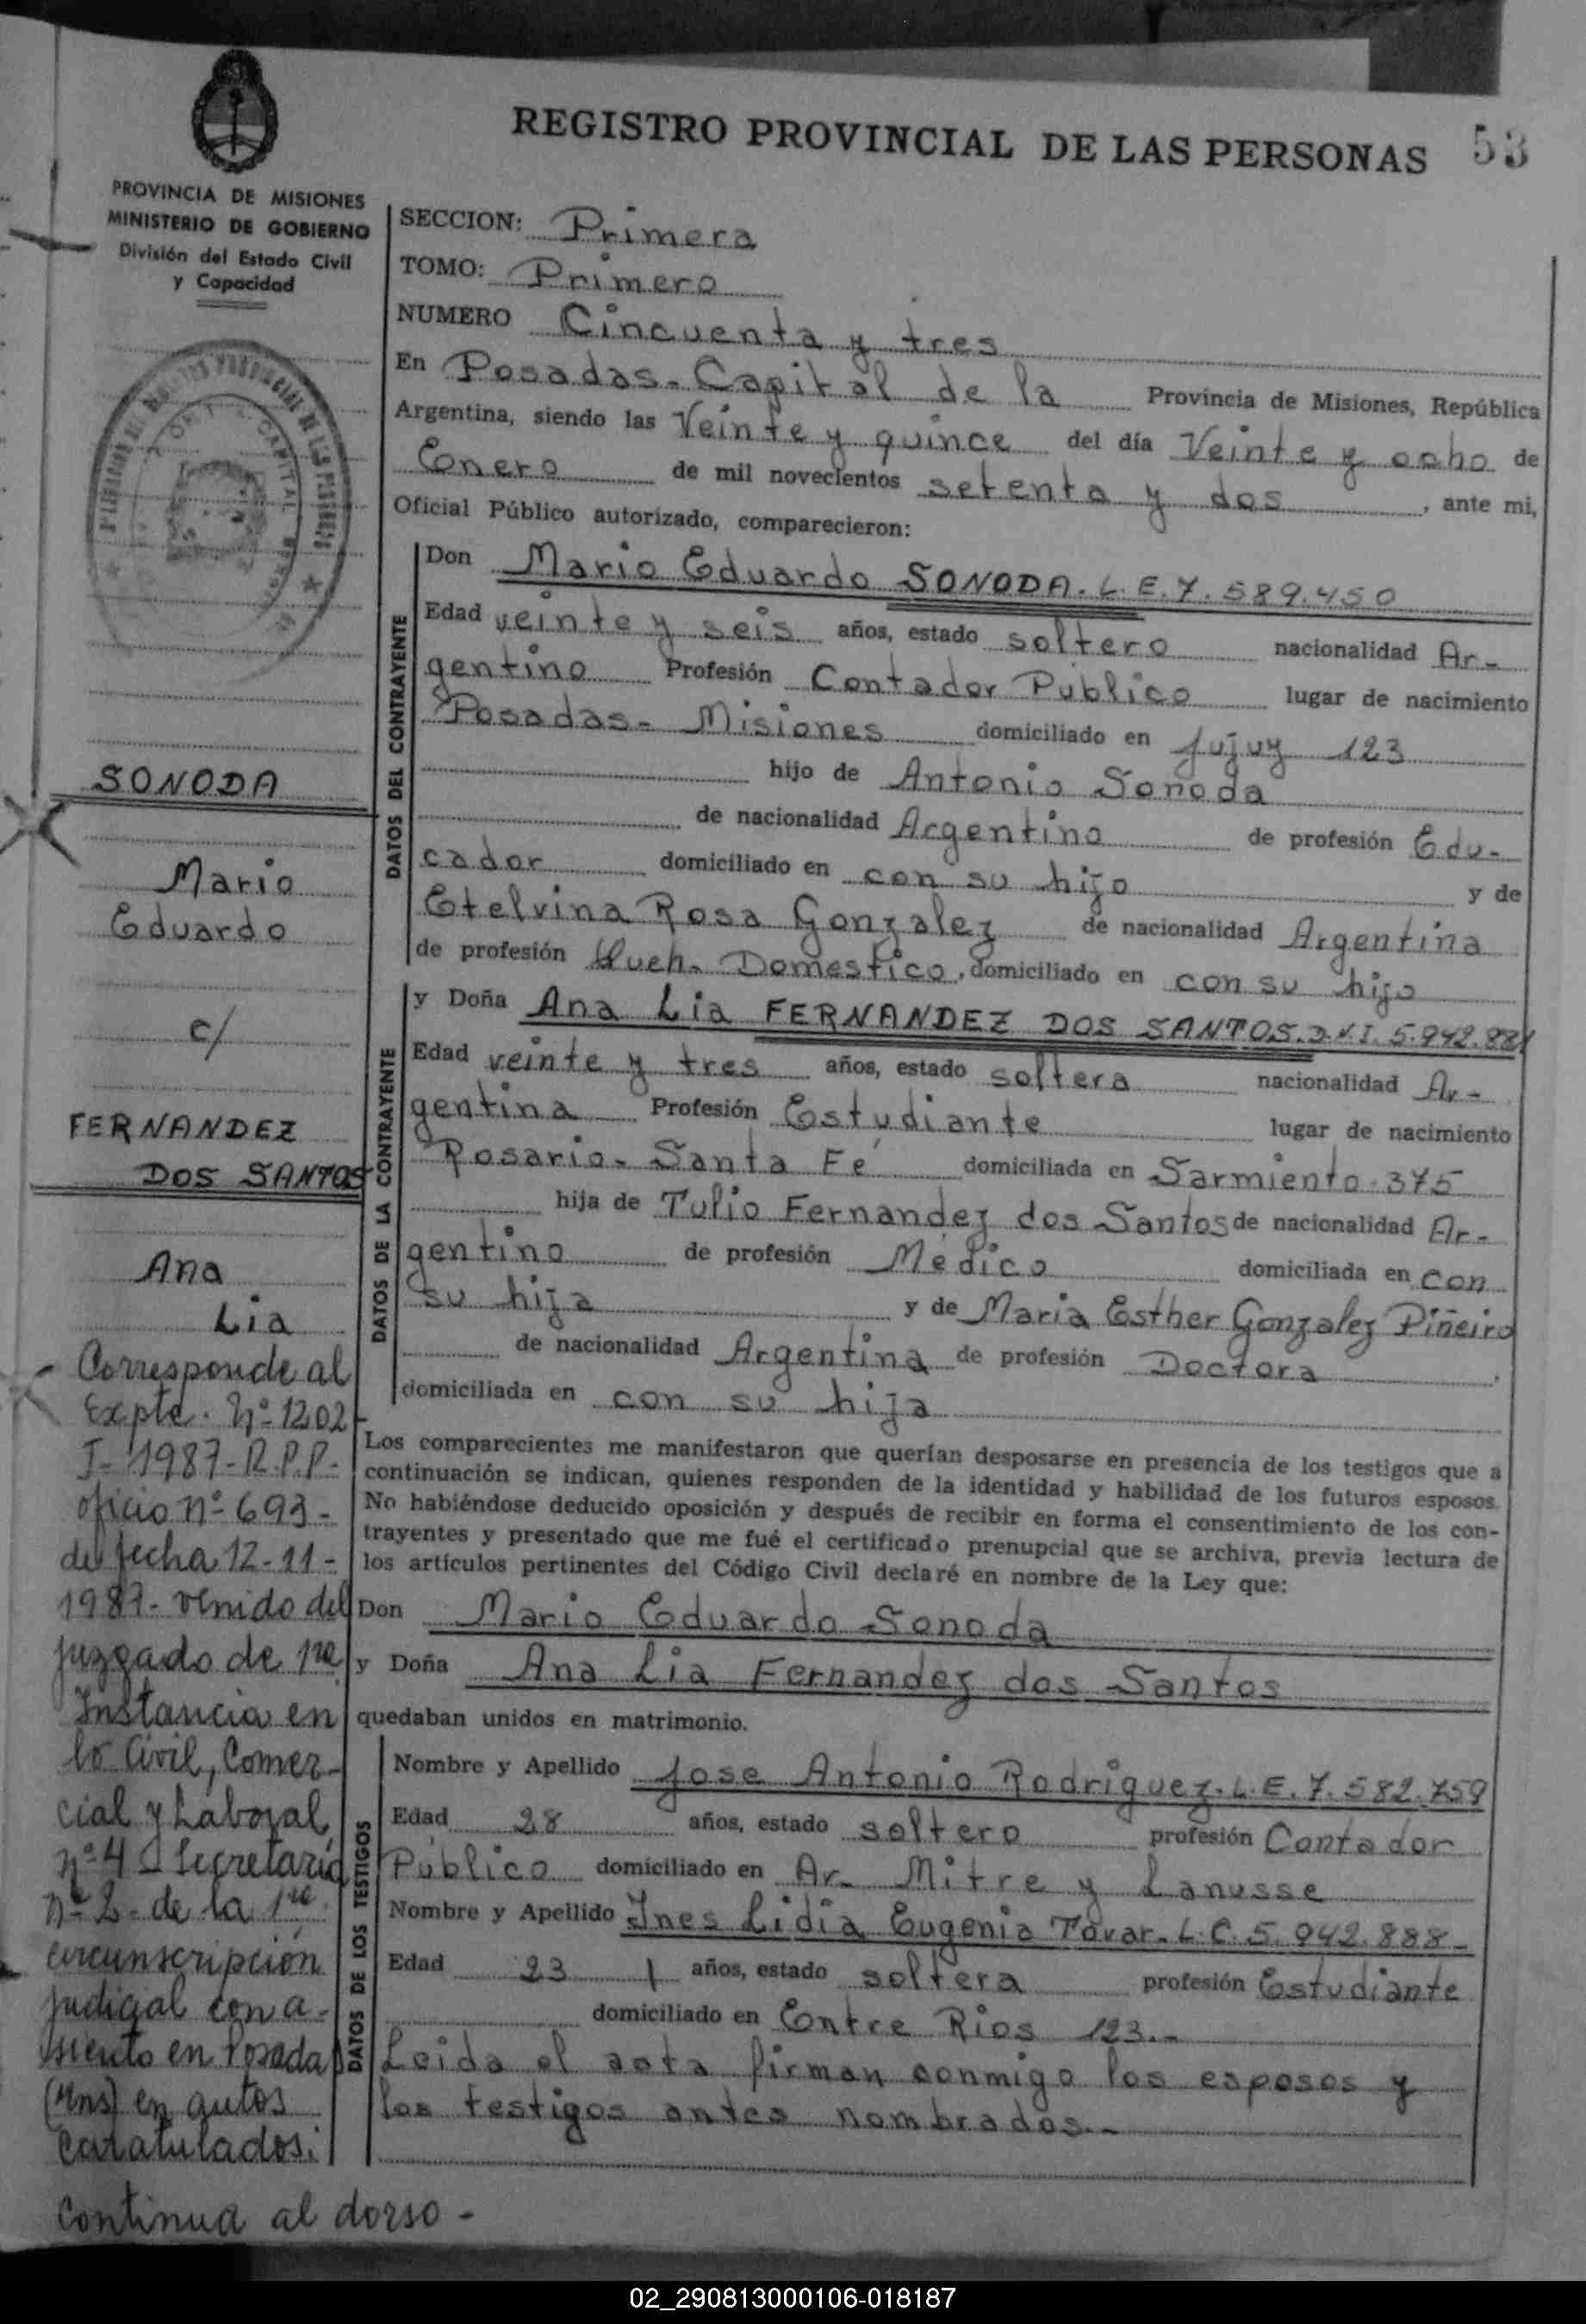 REGISTRO PROVINCIAL DE LAS PERSONAS 53
PROVINCIA DE MISIONES
MINISTERIO DE GOBIERNO
División del Estado Civil
y Capacidad
SECCION: Primera
TOMO: Primero
NUMERO Cincuenta y tres
En Posadas - Capital de la Provincia de Misiones, República
Argentina, siendo las Veinte y quince del día Veinte y ocho de
Enero de mil novecientos setenta y dos, ante mi,
Oficial Público autorizado, comparecieron:
DATOS DEL CONTRAYENTE
Don Mario Eduardo SONODA. L.E. 7.589.450
Edad veinte y seis años, estado soltero nacionalidad Ar-
gentino Profesión Contador Publico lugar de nacimiento
Posadas - Misiones domiciliado en Jujuy 123
hijo de Antonio Sonoda
de nacionalidad Argentino de profesión Edu-
cador domiciliado en con su hijo y de
Etelvina Rosa Gonzalez de nacionalidad Argentina
de profesión Queh. Domestico, domiciliado en con su hijo
DATOS DE LA CONTRAYENTE
y Doña Ana Lia FERNANDEZ DOS SANTOS. D.N.I. 5.942.881
Edad veinte y tres años, estado soltera nacionalidad Ar-
gentina Profesión Estudiante lugar de nacimiento
Rosario - Santa Fé domiciliada en Sarmiento 375
hija de Tulio Fernandez dos Santos de nacionalidad Ar-
gentino de profesión Médico domiciliada en con
su hija y de Maria Esther Gonzalez Piñeiro
de nacionalidad Argentina de profesión Doctora
domiciliada en con su hija
Los comparecientes me manifestaron que querían desposarse en presencia de los testigos que a
continuación se indican, quienes responden de la identidad y habilidad de los futuros esposos.
No habiéndose deducido oposición y después de recibir en forma el consentimiento de los con-
trayentes y presentado que me fué el certificado prenupcial que se archiva, previa lectura de
los artículos pertinentes del Código Civil declaré en nombre de la Ley que:
Don Mario Eduardo Sonoda
y Doña Ana Lia Fernandez dos Santos
quedaban unidos en matrimonio.
DATOS DE LOS TESTIGOS
Nombre y Apellido Jose Antonio Rodriguez. L.E. 7.582.759
Edad 28 años, estado soltero profesión Contador
Público domiciliado en Av. Mitre y Lanusse
Nombre y Apellido Ines Lidia Eugenia Tovar. L.C. 5.942.888-
Edad 23 años, estado soltera profesión Estudiante
domiciliado en Entre Rios 123.-
Leida el acta firman conmigo los esposos y
los testigos antes nombrados.-
SONODA
Mario
Eduardo
c/
FERNANDEZ
DOS SANTOS
Ana
Lia
Corresponde al
Expte. Nº 1202-
J- 1987- R.P.P.-
oficio nº 693-
de fecha 12-11-
1987- venido del
juzgado de 1ra
Instancia en
lo Civil, Comer-
cial y Laboral
nº 4 Secretaría
nº 2- de la 1ra
circunscripción
judicial con a-
siento en Posadas
(Mns) en autos
caratulados:
continua al dorso -
02_290813000106-018187